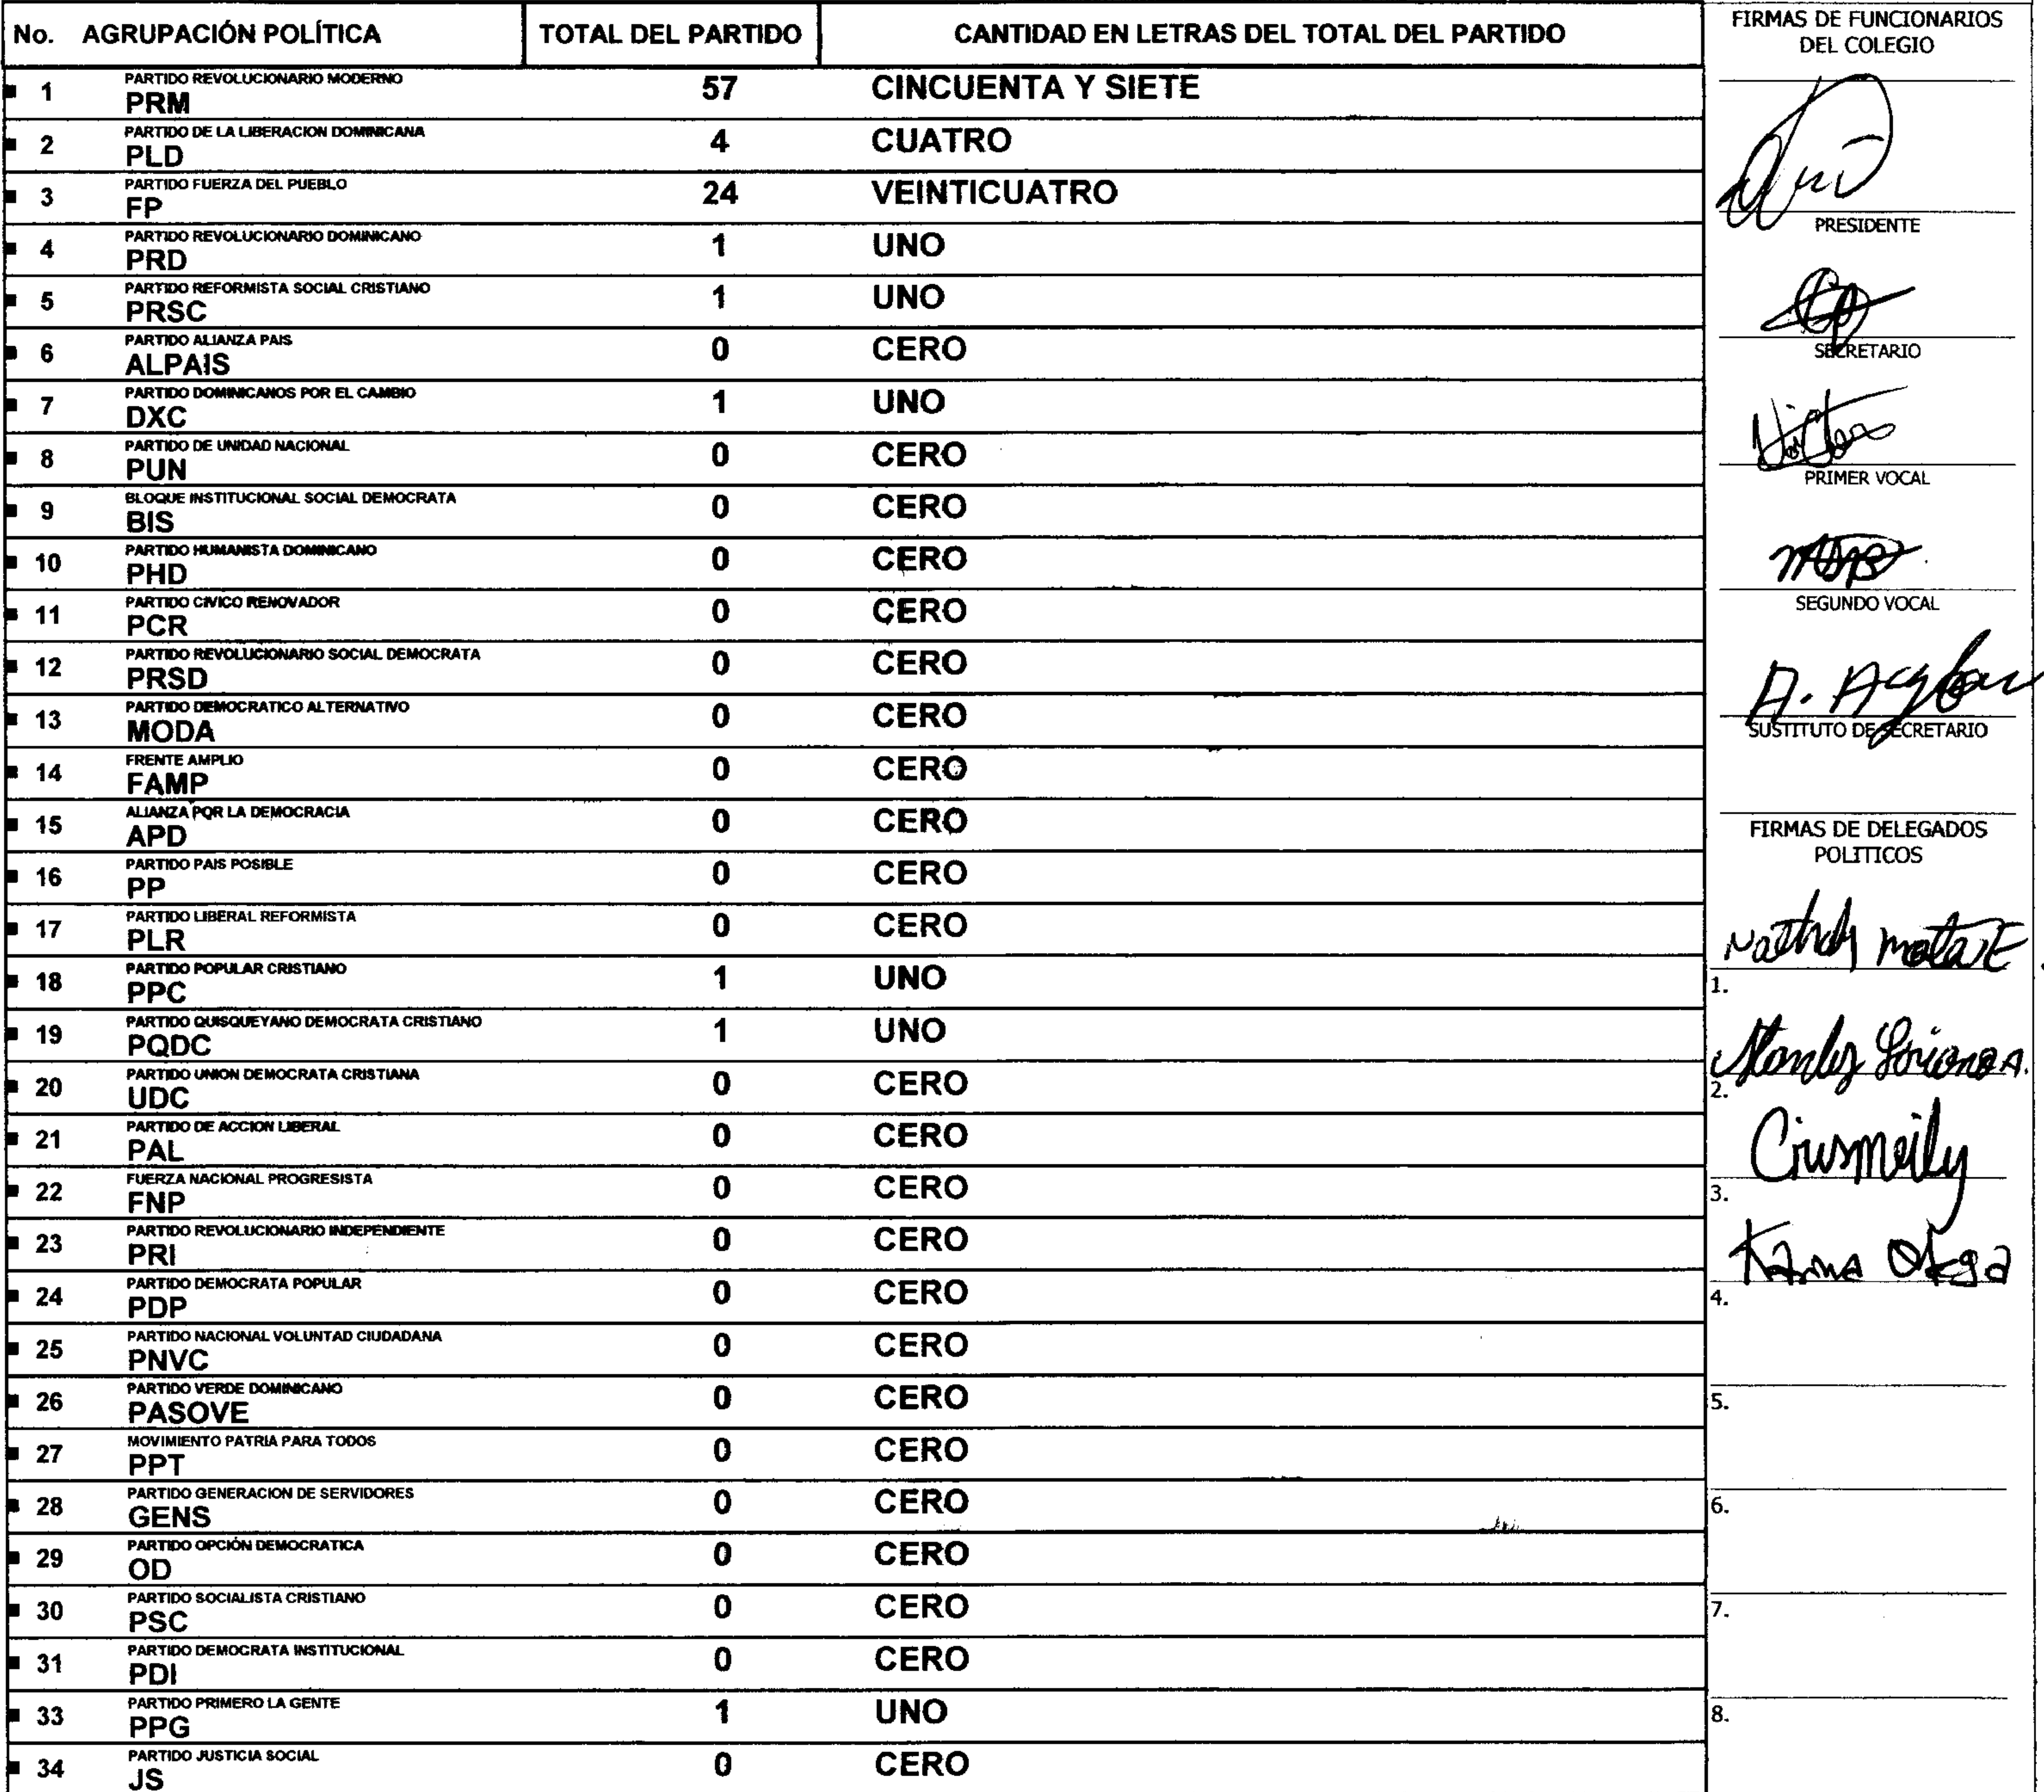 No. AGRUPACIÓN POLÍTICA TOTAL DEL PARTIDO CANTIDAD EN LETRAS DEL TOTAL DEL PARTIDO
1 PARTIDO REVOLUCIONARIO MODERNO
PRM 57 CINCUENTA Y SIETE
2 PARTIDO DE LA LIBERACION DOMINICANA
PLD 4 CUATRO
3 PARTIDO FUERZA DEL PUEBLO
FP 24 VEINTICUATRO
4 PARTIDO REVOLUCIONARIO DOMINICANO
PRD 1 UNO
5 PARTIDO REFORMISTA SOCIAL CRISTIANO
PRSC 1 UNO
6 PARTIDO ALIANZA PAIS
ALPAIS 0 CERO
7 PARTIDO DOMINICANOS POR EL CAMBIO
DXC 1 UNO
8 PARTIDO DE UNIDAD NACIONAL
PUN 0 CERO
9 BLOQUE INSTITUCIONAL SOCIAL DEMOCRATA
BIS 0 CERO
10 PARTIDO HUMANISTA DOMINICANO
PHD 0 CERO
11 PARTIDO CIVICO RENOVADOR
PCR 0 CERO
12 PARTIDO REVOLUCIONARIO SOCIAL DEMOCRATA
PRSD 0 CERO
13 PARTIDO DEMOCRATICO ALTERNATIVO
MODA 0 CERO
14 FRENTE AMPLIO
FAMP 0 CERO
15 ALIANZA POR LA DEMOCRACIA
APD 0 CERO
16 PARTIDO PAIS POSIBLE
PP 0 CERO
17 PARTIDO LIBERAL REFORMISTA
PLR 0 CERO
18 PARTIDO POPULAR CRISTIANO
PPC 1 UNO
19 PARTIDO QUISQUEYANO DEMOCRATA CRISTIANO
PQDC 1 UNO
20 PARTIDO UNION DEMOCRATA CRISTIANA
UDC 0 CERO
21 PARTIDO DE ACCION LIBERAL
PAL 0 CERO
22 FUERZA NACIONAL PROGRESISTA
FNP 0 CERO
23 PARTIDO REVOLUCIONARIO INDEPENDIENTE
PRI 0 CERO
24 PARTIDO DEMOCRATA POPULAR
PDP 0 CERO
25 PARTIDO NACIONAL VOLUNTAD CIUDADANA
PNVC 0 CERO
26 PARTIDO VERDE DOMINICANO
PASOVE 0 CERO
27 MOVIMIENTO PATRIA PARA TODOS
PPT 0 CERO
28 PARTIDO GENERACION DE SERVIDORES
GENS 0 CERO
29 PARTIDO OPCIÓN DEMOCRATICA
OD 0 CERO
30 PARTIDO SOCIALISTA CRISTIANO
PSC 0 CERO
31 PARTIDO DEMOCRATA INSTITUCIONAL
PDI 0 CERO
33 PARTIDO PRIMERO LA GENTE
PPG 1 UNO
34 PARTIDO JUSTICIA SOCIAL
JS 0 CERO
FIRMAS DE FUNCIONARIOS
DEL COLEGIO
PRESIDENTE
SECRETARIO
PRIMER VOCAL
SEGUNDO VOCAL
A.
SUSTITUTO DE SECRETARIO
FIRMAS DE DELEGADOS
POLITICOS
1.
2.
3.
4.
5.
6.
7.
8.